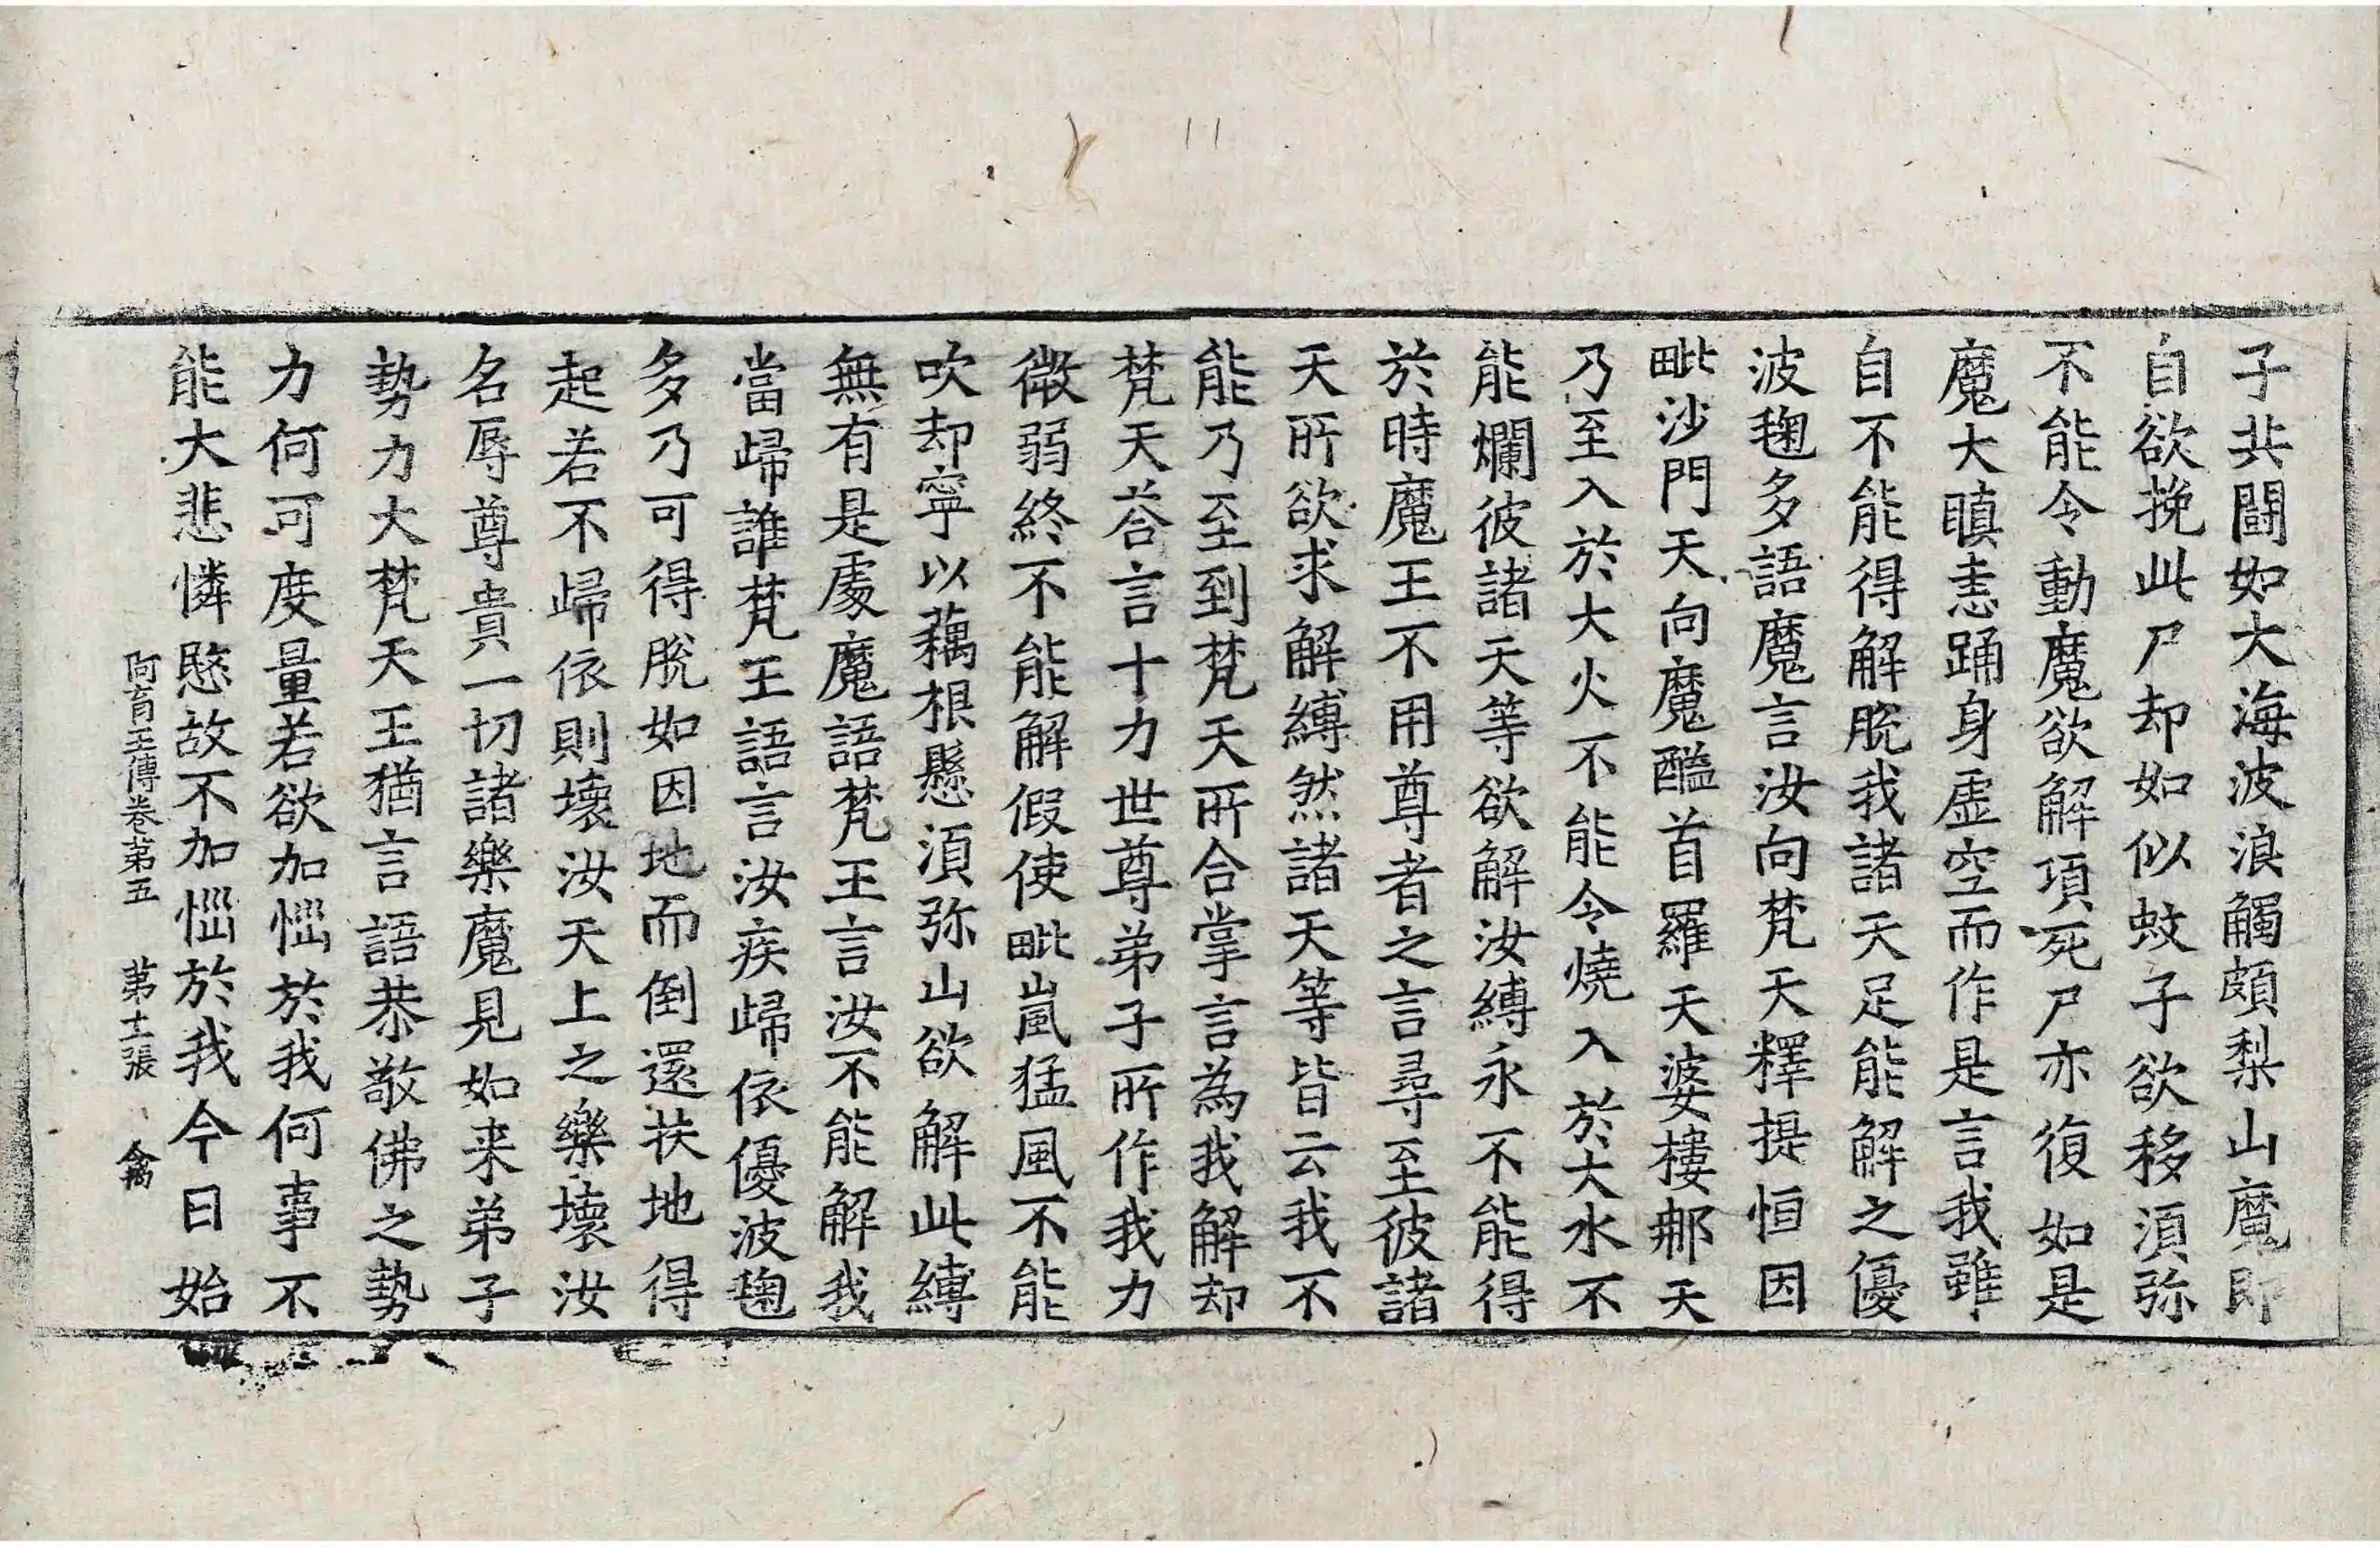 子共鬪如大海波浪觸頗梨山魔即
自欲挽此尸却如似蚊子欲移湏弥
不能令動魔欲解項死尸亦復如是
魔大瞋恚踊身虛空而作是言我雖
自不能得解脫我諸天足能解之優
波毱多語魔言汝向梵天釋提恒因
毗沙門天向魔醯首羅天婆樓那天
乃至入於大火不能令燒入於大水不
能爛彼諸天等欲解汝縛永不能得
於時魔王不用尊者之言尋至彼諸
天所欲求解縛然諸天等皆云我不
能乃至到梵天所合掌言為我解却
梵天荅言十力世尊弟子所作我力
微弱終不能解假使毗嵐猛風不能
吹却寧以藕根懸湏弥山欲解此縛
無有是處魔語梵王言汝不能解我
當歸誰梵王語言汝疾歸依優波毱
多乃可得脫如因地而倒還扶地得
起若不歸依則壞汝天上之樂壞汝
名辱尊貴一切諸樂魔見如来弟子
勢力大梵天王猶言語恭敬佛之勢
力何可度量若欲加惱於我何事不
能大悲憐愍故不加惱於我今日始
阿育王傳卷苐五 苐十一張 禽